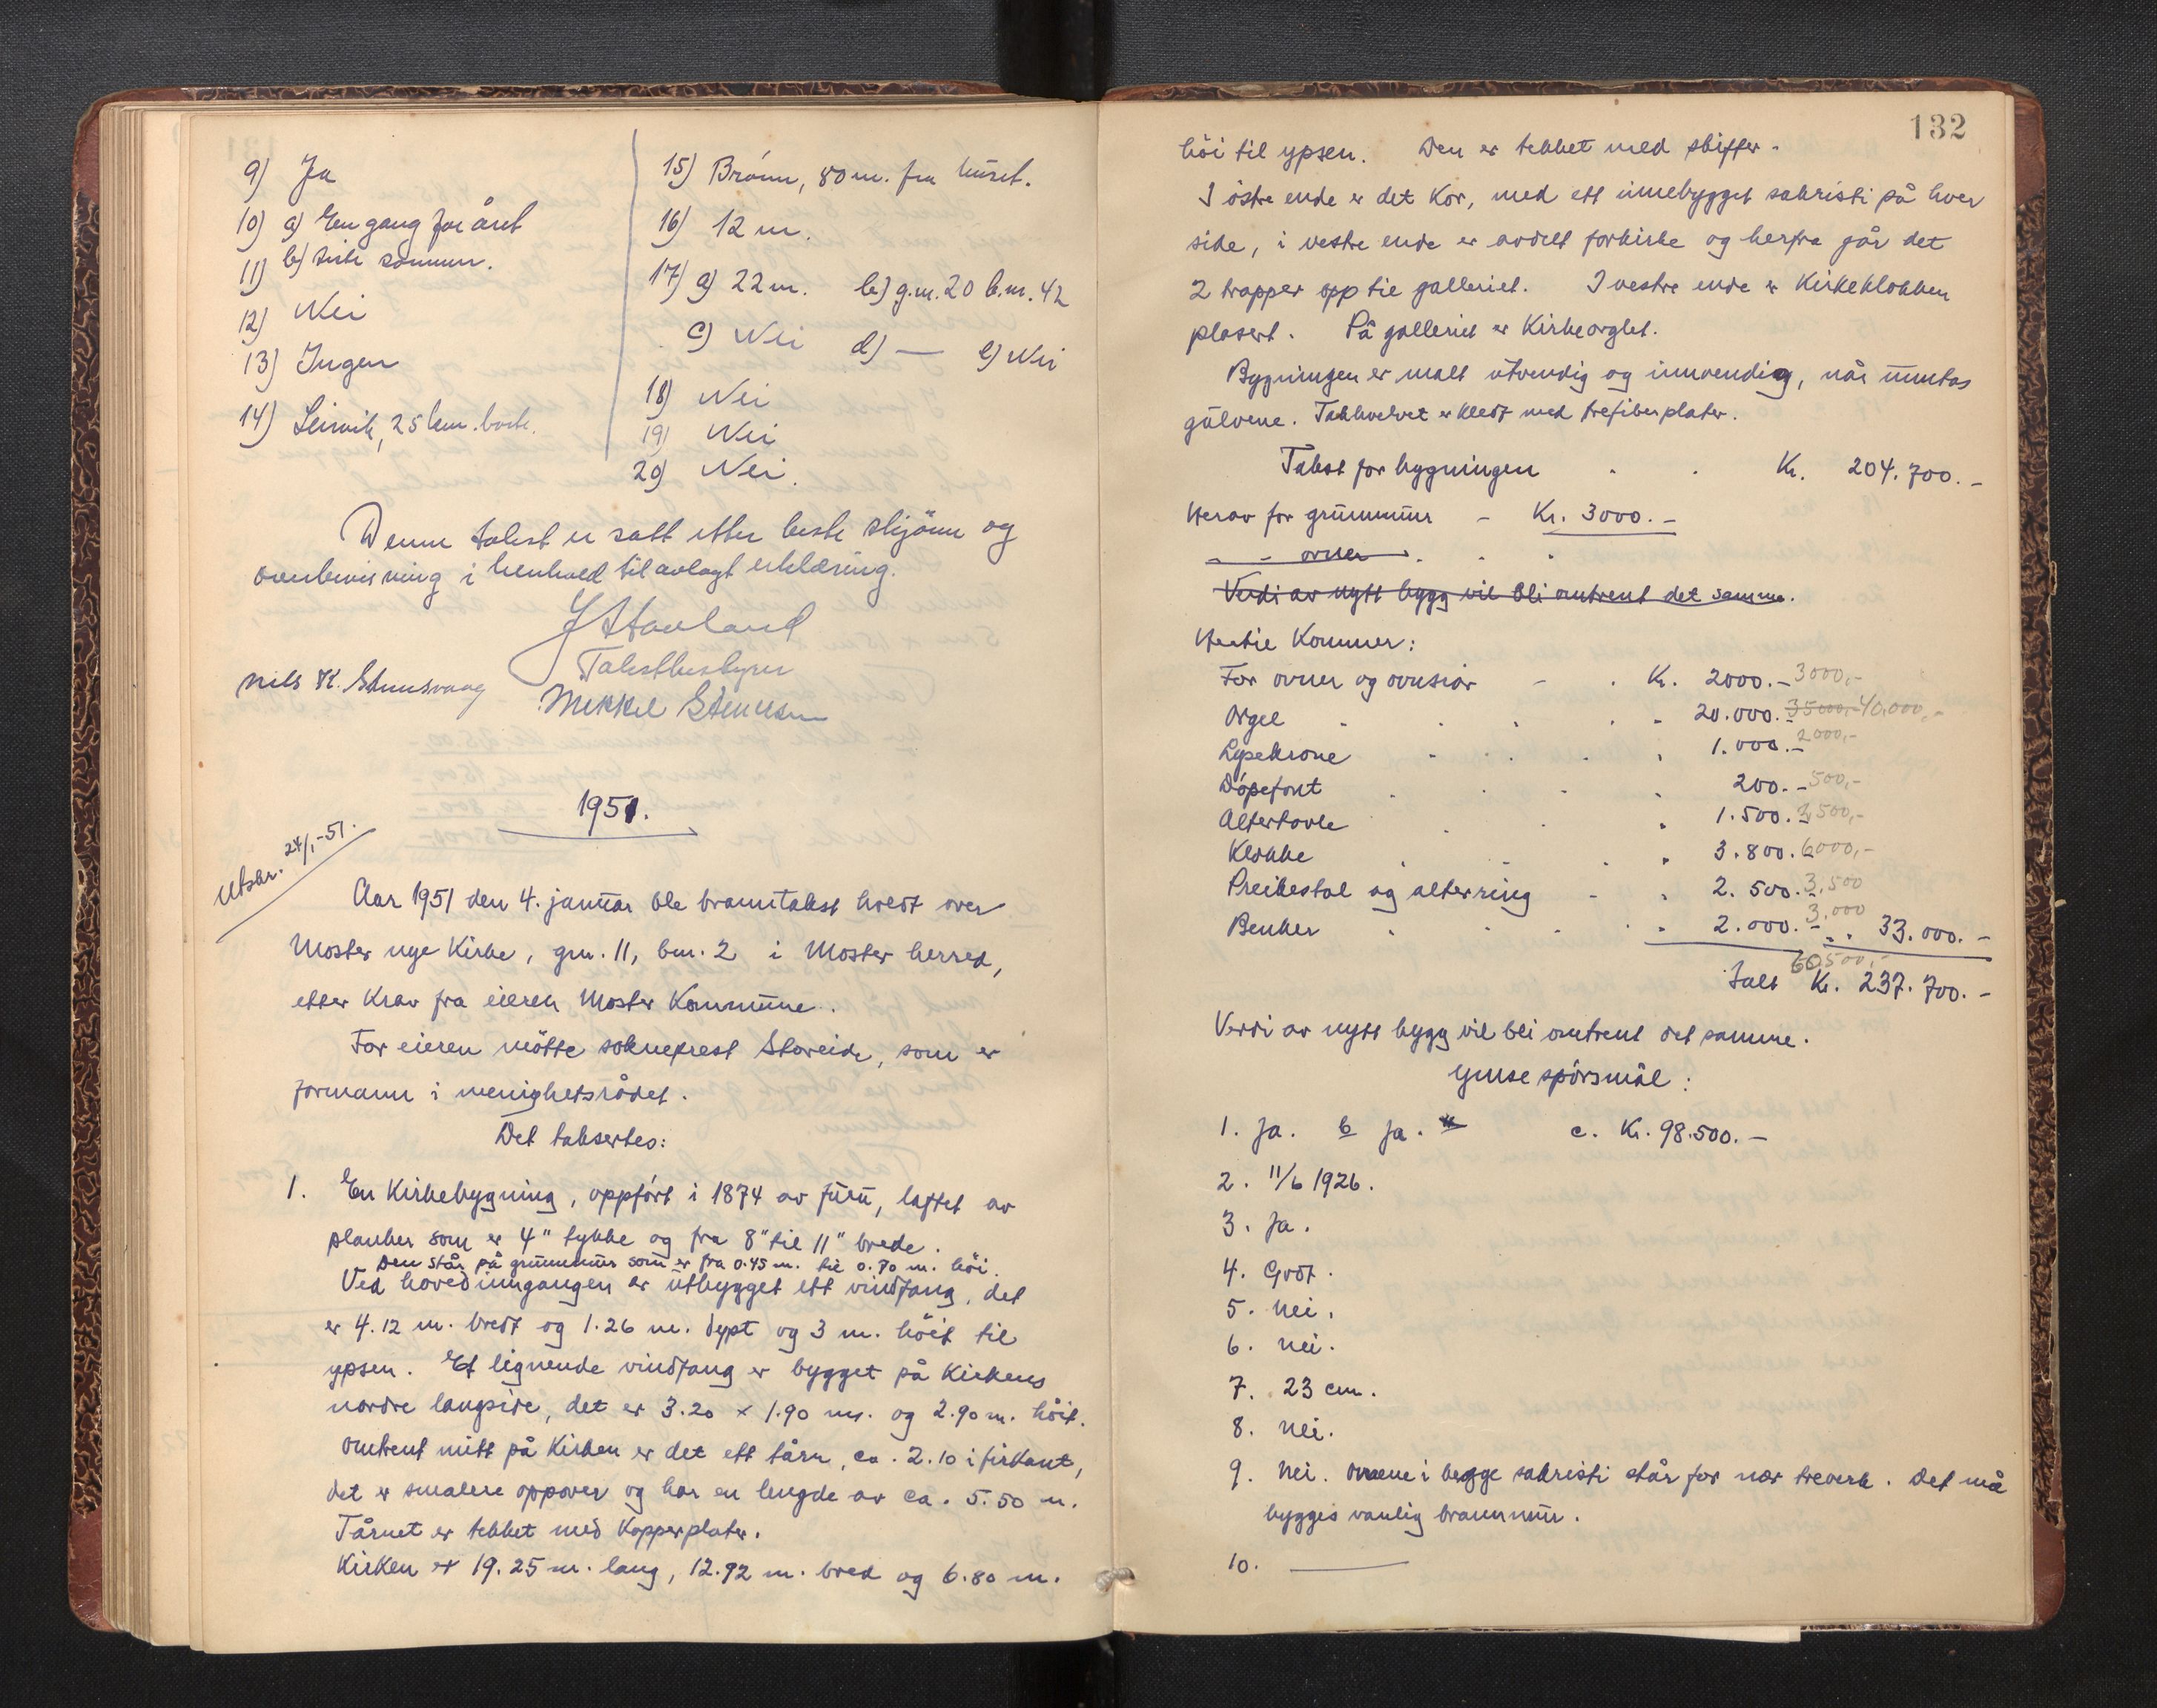 9) Ja
10) a) En gang for året
11) b) siste sommer.
12) Nei
13) Ingen
14) Leirvik, 25 km. borte.
15) Brönn, 80 m. fra huset.
16) 12 m.
17) a) 22 m. b) g.nr. 20 b.nr. 42
c) Nei d) — e) Nei
18) Nei
19) Nei
20) Nei.
Denne takst er satt etter beste skjönn og
overbevisning i henhold til avlagt erklæring.
Takstbestyrer
Nils K.
Mikkel
1951.
Utskr. 24/1-51.
Aar 1951 den 4. januar ble branntakst holdt over
Moster nye Kirke, gnr. 11, bnr. 2 i Moster herred,
etter Krav fra eieren Moster Kommune.
For eieren mötte sokneprest Støreide, som er
formann i menighetsrådet.
Det taksertes:
1. En Kirkebygning, oppfört i 1874 av furu, laftet av
planker som er 4" tykke og fra 8" til 11" brede.
Den står på grunnmur som er fra 0.45 m. til 0.70 m. höi.
Ved hovedinngangen er utbygget ett vindfang, det
er 4.12 m. bredt og 1.26 m. dypt og 3 m. höit til
ypsen. Et lignende vindfang er bygget på Kirkens
nordre langside, det er 3.20 x 1.90 m. og 2.90 m. höit.
Omtrent mitt på Kirken er det ett tårn, ca. 2.10 i firkant,
det er smalere oppover og har en lengde av ca. 5.50 m.
Tårnet er tekket med Kopperplater.
Kirken er 19.25 m. lang, 12.92 m. bred og 6.80 m.
132
höi til ypsen. Den er tekket med skiffer.
I östre ende er det Kor, med ett innebygget sakristi på hver
side, i vestre ende er avdelt forkirke og herfra går det
2 trapper opp til galleriet. I vestre ende er Kirkeklokken
plasert. På galleriet er Kirkeorglet.
Bygningen er malt utvendig og innvendig, når unntas
gulvene. Takhvelvet er kledt med trefiberplater.
Takst for bygningen . . Kr. 204.700.-
Herav for grunnmur - Kr. 3000.-
- - ovner . . .
Verdi av nytt bygg vil bli omtrent det samme.
Hertil Kommer:
For ovner og ovnsrör - . Kr. 2000.- 3000,-
Orgel . . . . . 20.000.- 35000,- 40.000,-
Lysekrone . . . . 1.000.- 2000,-
Döpefont . . . . 200.- 500,-
Altertavle . . . 1.500.- 2500,-
Klokke . . . . 3.800.- 6000,-
Preikestol og alterring - . 2.500.- 3.500
Benker . . . . . 2.000.- 3.000 . . 33.000.-
60500,-
Ialt Kr. 237.700.-
Verdi av nytt bygg vil bli omtrent det samme.
Ymse spörsmål:
1. Ja. b Ja. c. Kr. 98.500.-
2. 11/6 1926.
3. Ja.
4. Godt.
5. Nei.
6. Nei.
7. 23 cm.
8. Nei.
9. Nei. Ovnene i begge sakristi står for nær treverk. Det må
bygges vanlig brannmur.
10. ———